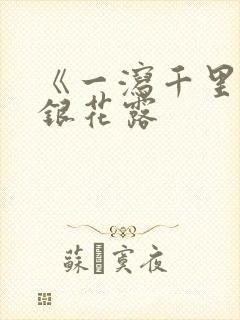 《一瀉千里
銀花露
蘇 寞夜